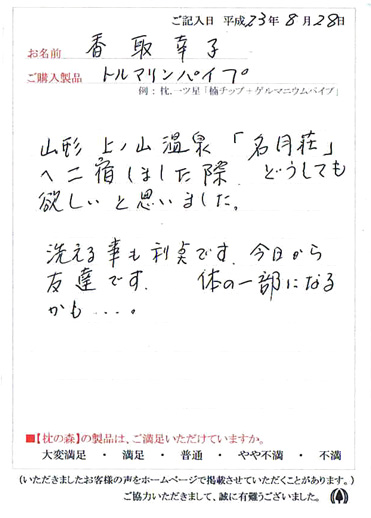 ご記入日 平成23年8月28日
お名前 香取幸子
ご購入製品 トルマリンパイプ
例:枕.一ツ星「楠チップ+ゲルマニウムパイプ」
山形 上ノ山温泉「名月荘」
へ二宿しました際、どうしても
欲しいと思いました。
洗える事も利点です.今日から
友達です. 体の一部になる
かも・・・・。
■【枕の森】の製品は、ご満足いただけていますか。
大変満足 ・ 満足 ・ 普通 ・ やや不満 ・ 不満
(いただきましたお客様の声をホームページで掲載させていただくことがあります。)
ご協力いただきまして、誠に有難うございました。